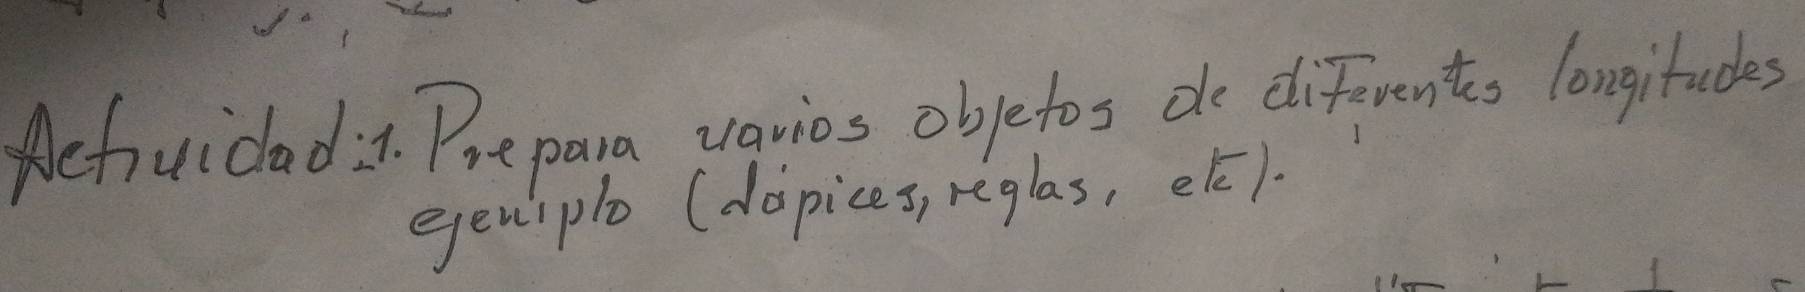 Actividad:1. Prepara varios objetos de diferentes longitudes
ejemplo (lápices, reglas, etc).